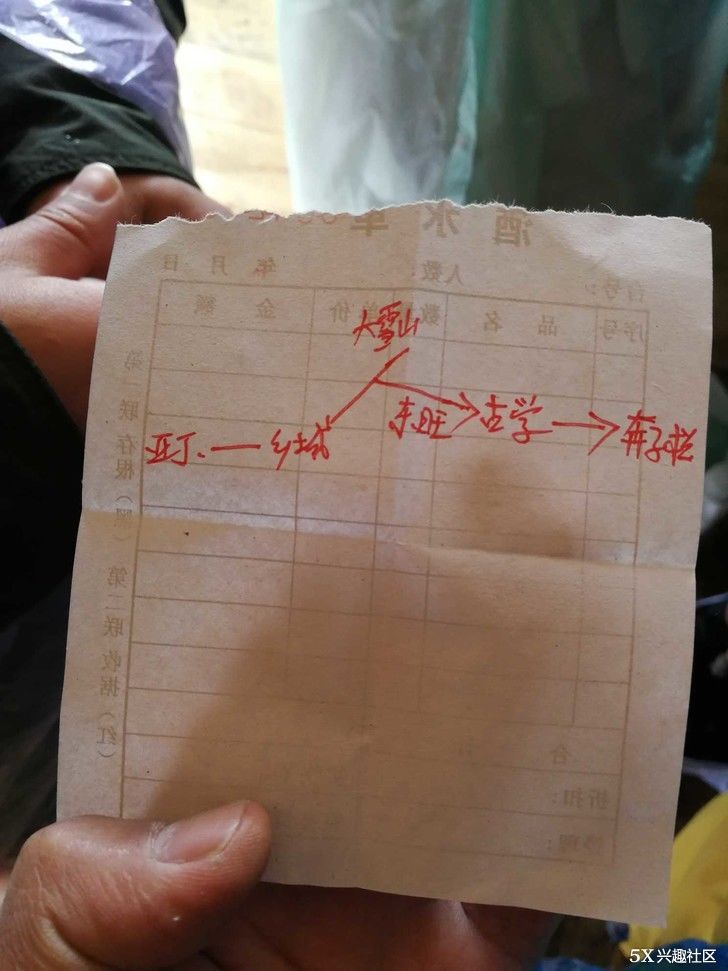 酒水单
年 月 日
人数:
台号:
序号 品名 数 单价 金额
大雪山
亚丁、—乡城
东旺 古学 奔子栏
第一联存根(黑) 第二联收据(红)
合
折扣:
5X兴趣社区